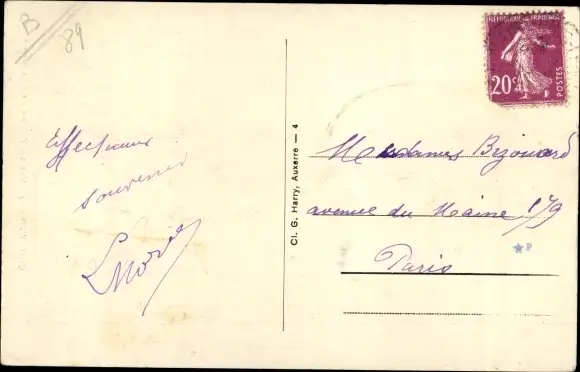 B
89
RÉPUBLIQUE FRANÇAISE
20c
POSTES
Affectueux
souvenirs
Cl. G. Harry, Auxerre — 4
Mesdames Bizouard
avenue du Maine 179
Paris